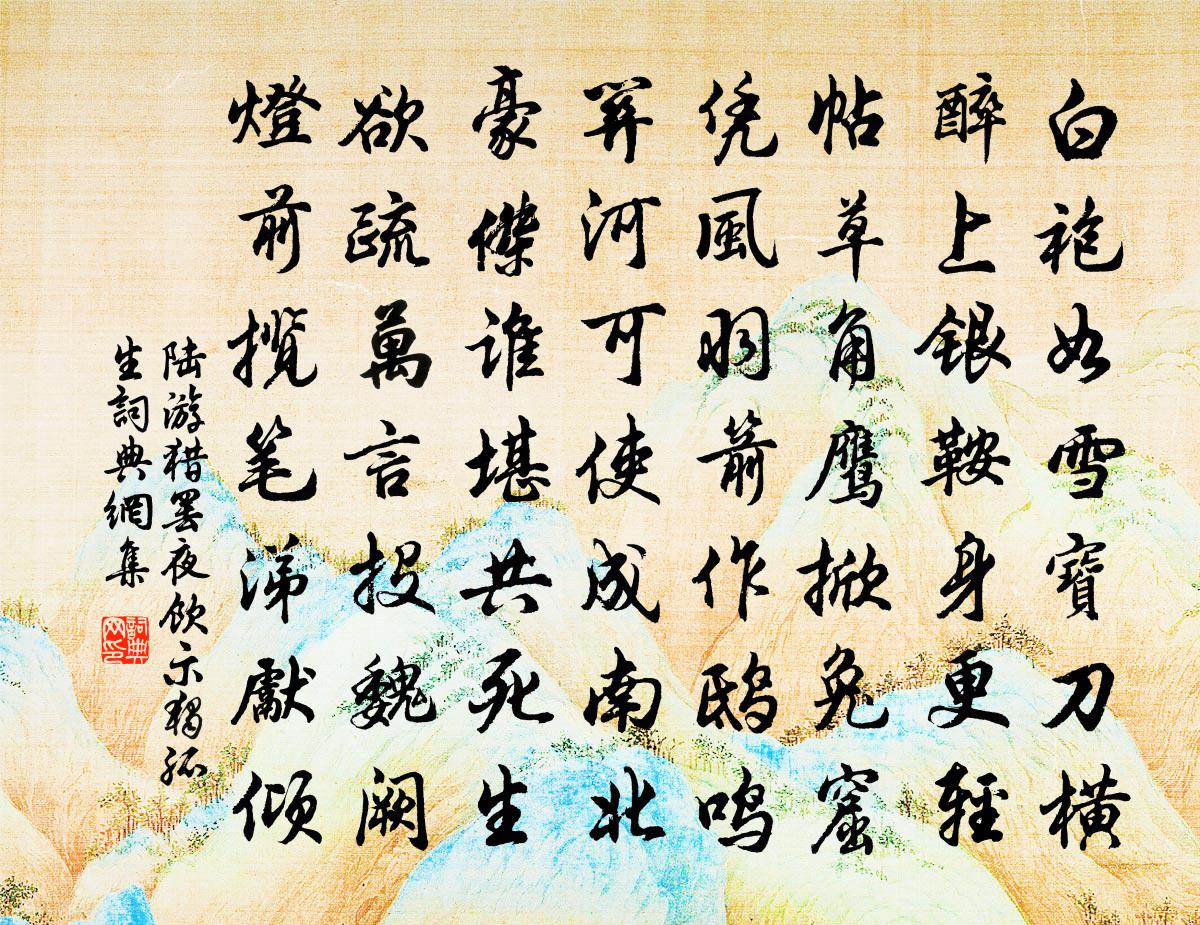 白袍如雪寶刀橫
醉上銀鞍身更輕
帖草角鹰掀兔窟
凭風羽箭作鴟鳴
關河可使成南北
豪傑誰堪共死生
欲疏萬言投魏闕
燈前攬笔涕獻傾
陆游猎罢夜飲示獨孤
生詞典網集
詞典
网印